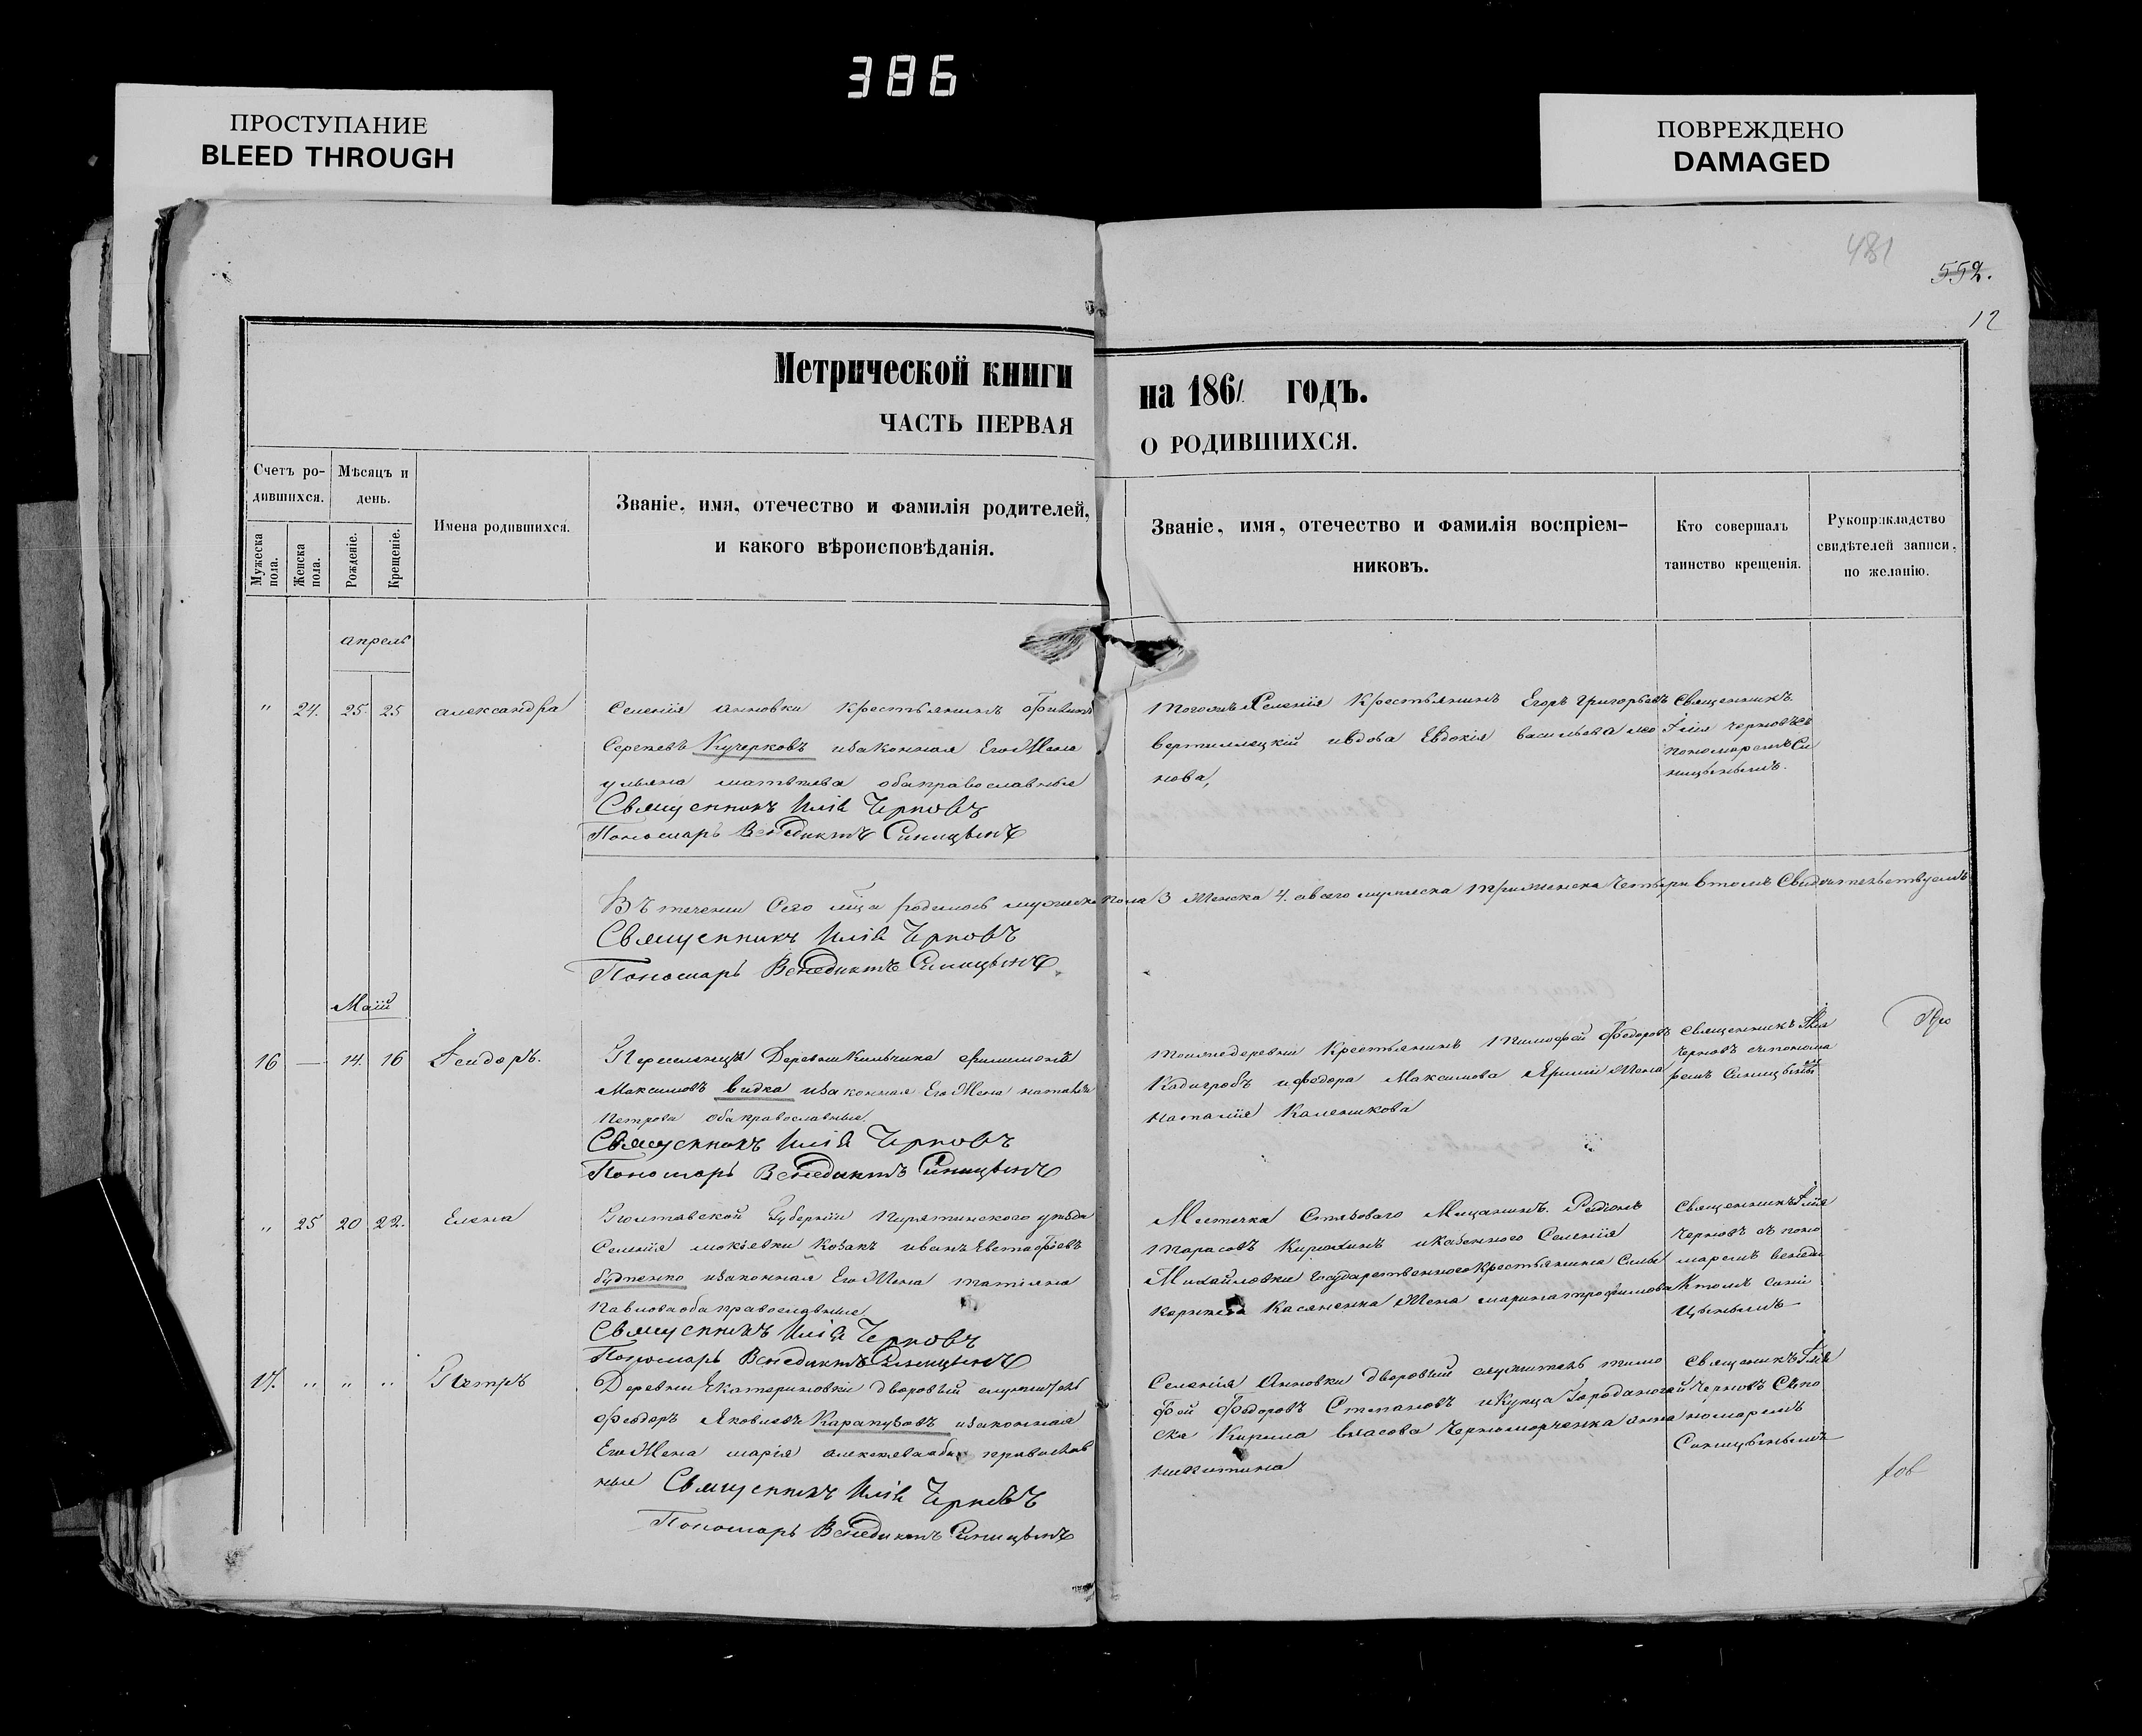 386
ПРОСТУПАНИЕ
BLEED THROUGH
ПОВРЕЖДЕНО
DAMAGED
481
552.
12
Метрической книги на 1861 годъ.
ЧАСТЬ ПЕРВАЯ О РОДИВШИХСЯ.
Счетъ ро-
дившихся.
Мужеска пола.
Женска пола.
Мѣсяцъ и
день.
Рожденіе.
Крещеніе.
Имена родившихся.
Званіе, имя, отечество и фамилія родителей,
и какого вѣроисповѣданія.
Званіе, имя, отечество и фамилія воспріем-
никовъ.
Кто совершалъ
таинство крещенія.
Рукоприкладство
свидѣтелей записи,
по желанію.
апрель
" 24. 25. 25 александра
Селенія анновки Крестьянинъ
Сергеевъ Кучерковъ изаконная Его Жена
ульяна матвѣева обаправославные
Священникъ Илія Черновъ
Пономарь Венедиктъ Синицынъ
Тогожъ Селенія Крестьянинъ Егоръ Григорьевъ
Вертилецкій ивдова Евдокія васильева
нова,
Священникъ
Ілія Черновъ съ
пономаремъ Си
ницынымъ.
Въ течении Сего мца родилось мужеска пола 3 Женска 4. авсего мужеска три женска Четыри втомъ Свидѣтельствуемъ
Священникъ Илія Черновъ
Пономарь Венедиктъ Синицынъ
Маій
16 — 14. 16 Ісидоръ.
Переселенецъ Деревни Кильчика филимонъ
Максимовъ видка изаконная Его Жена наталія
Петрова обаправославные
Священникъ Илія Черновъ
Пономарь Венедиктъ Синицынъ
тоижедеревни Крестьянинъ Тимофей Федоровъ
Кадигробъ ифедора Максимова Жена
Наталія Каленикова
Священникъ Ілія
Черновъ спонома
ремъ Синицынымъ
" 25 20 22. Елена
Полтавской Губерніи Пирятинского уѣзда
Селенія мокіевки Козакъ иванъ Евстафіевъ
изаконная Его Жена татіяна
Павловаобаправославные
Священникъ Илія Черновъ
Пономарь Венедиктъ Синицынъ
Местечка Мещанинъ. Родіонъ
Тарасовъ иказенного Селенія
Михайловки государственного Крестьянина
Касяненка Жена марина трофимова
Священникъ Ілія
Черновъ съ поно
маремъ венеди
ктомъ Сини
цынымъ
17. " " " Петръ
Деревни Екатериновки дворовый служитель
Феодоръ Яковлевъ Карапузовъ изаконная
Его Жена марія алексѣеваоба православ
ные Священникъ Илія Черновъ
Пономарь Венедиктъ Синицынъ
Селенія Анновки дворовый служитель тимо
фей Федоровъ Степановъ икупца
Кирила власова Черноморченка анна
никитина
Священикъ Ілія
Черновъ Спо
номаремъ
Синицынымъ